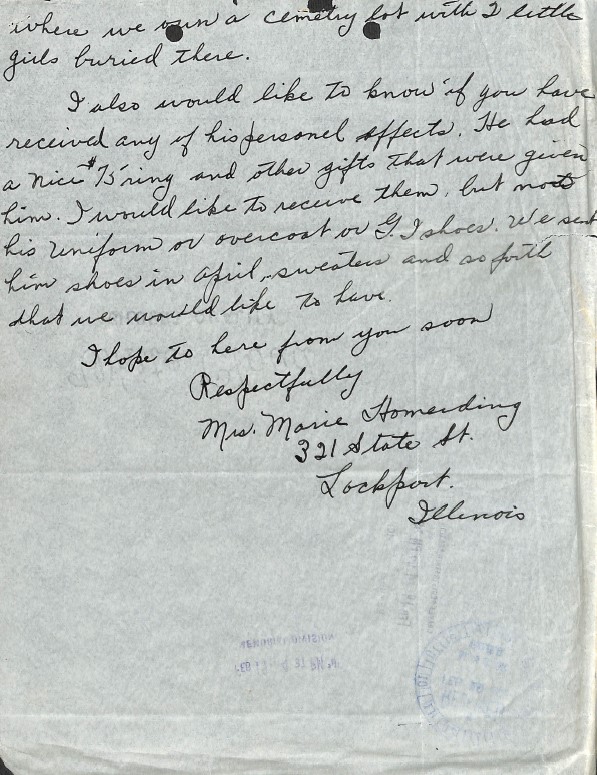 where we own a cemetry lot with 2 little
girls buried there.
I also would like to know if you have
received any of his personel effects. He had
a nice $15 ring and other gifts that were given
him. I would like to receive them, but not
his uniform or overcoat or G.I shoes. We sent
him shoes in April, sweaters and so forth
that we would like to have.
I hope to here from you soon
Respectfully
Mrs. Marie Homerding
321 State St.
Lockport.
Illinois
MEMORIAL DIVISION